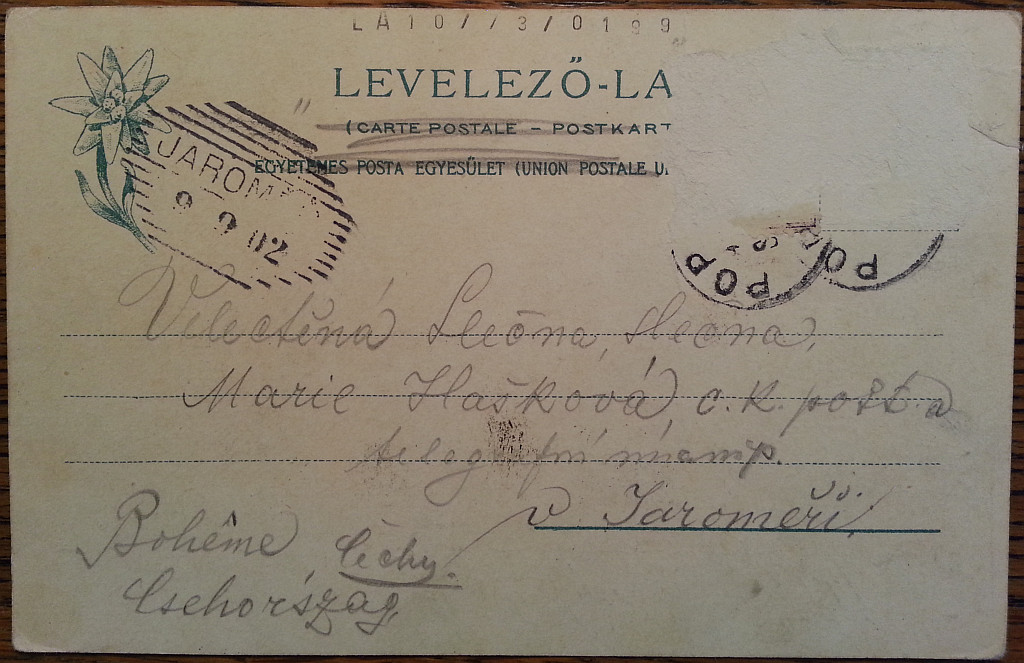 LA10//3/0199
LEVELEZŐ-LA
(CARTE POSTALE – POSTKART
EGYETEMES POSTA EGYESÜLET (UNION POSTALE U
JAROM
9 9 02
POP
PO
Velectěná Slečna, slečna,
Marie Hašková c. k. post. a
v Jaroměři,
Bohême Čechy.
Csehország